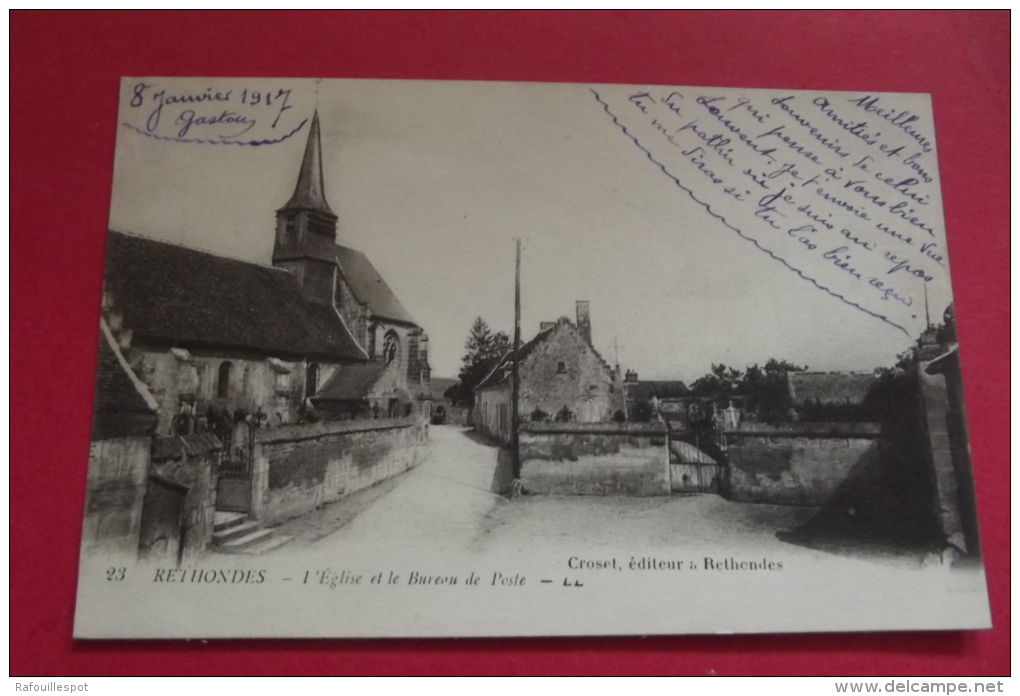 8 Janvier 1917
Gaston
Meilleures
amitiés et bons
souvenirs de celui
qui pense à vous bien
souvent. je t'envoie une vue
du patlin où je suis au repos
tu me diras si tu l'as bien reçu
23 RETHONDES - L'Église et le Bureau de Poste - LL
Croset, éditeur à Rethondes
Rafouillespot
www.delcampe.net